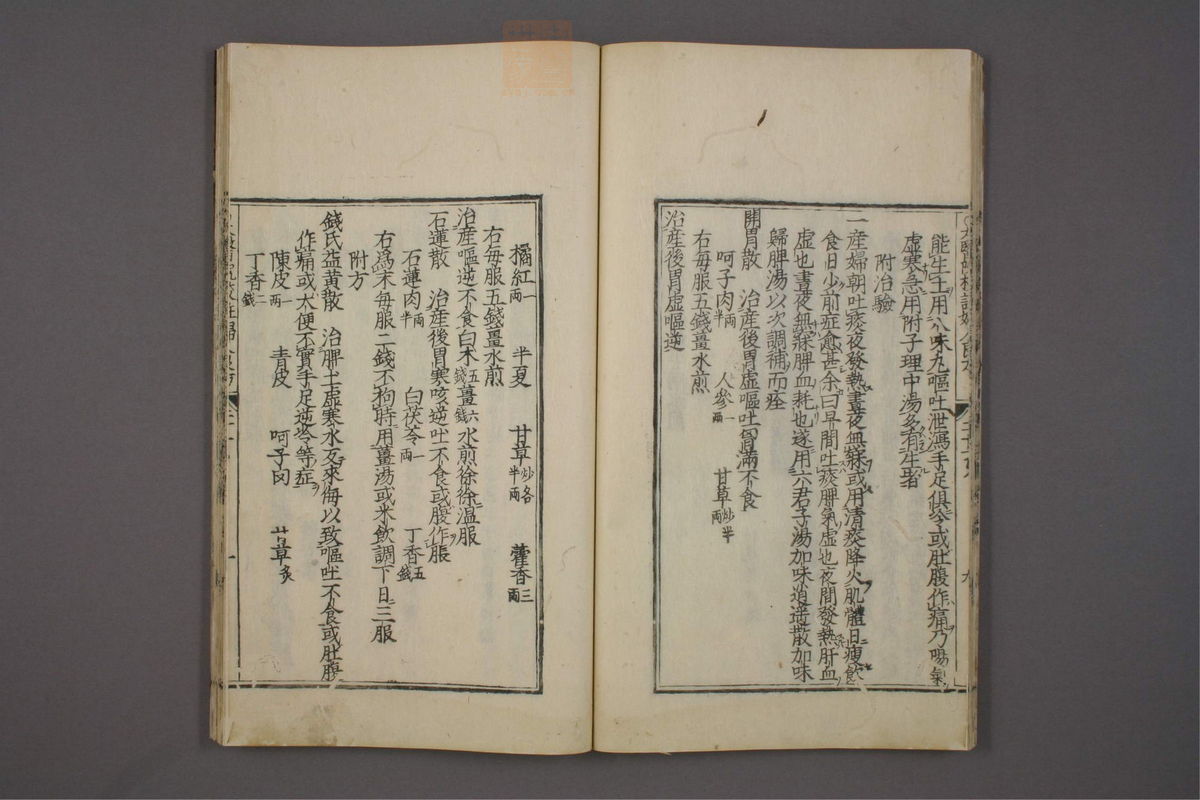 能生土用八味丸嘔吐泄瀉手足俱冷或肚腹作痛乃陽氣
虛寒急用附子理中湯多有生者
附治驗
一産婦朝吐痰夜發熱晝夜無寐或用清痰降火肌體日瘦飲
食日少前症愈甚余曰早間吐痰脾氣虛也夜間發熱肝血
虛也晝夜無寐脾血耗也遂用六君子湯加味逍遥散加味
歸脾湯以次調補而痊
開胃散 治産後胃虛嘔吐胷滿不食
呵子肉半兩 人參一兩 甘草炒半兩
右每服五錢薑水煎
治産後胃虛嘔逆
橘紅一兩 半夏 甘草炒各半兩 藿香三兩
右每服五錢薑水煎
治産嘔逆不食白朮五錢薑六錢水煎徐徐温服
石蓮散 治産後胃寒咳逆吐不食或腹作脹
石蓮肉兩半 白茯苓一兩 丁香五錢
右爲末每服二錢不拘時用薑湯或米飲調下日三服
附方
錢氏益黄散 治脾土虛寒水反來侮以致嘔吐不食或肚腹
作痛或大便不實手足逆冷等症
陳皮一兩 青皮 呵子肉 甘草炙
丁香二錢